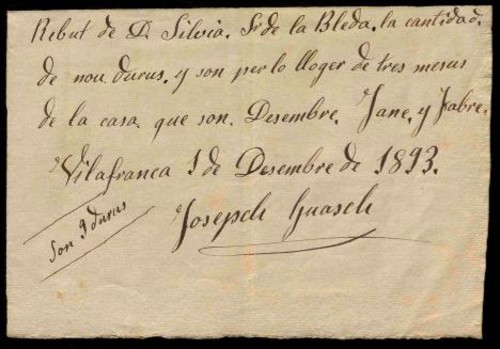 Rebut de D. Silvia. Sr de la Bleda. la cantidad.
de nou durus. y son per lo lloger de tres mesus
de la casa. que son. Desembre. Jane. y Fabre.
Vilafranca 1 de Desembre de 1893.
Josepch Guasch
Son 9 durus